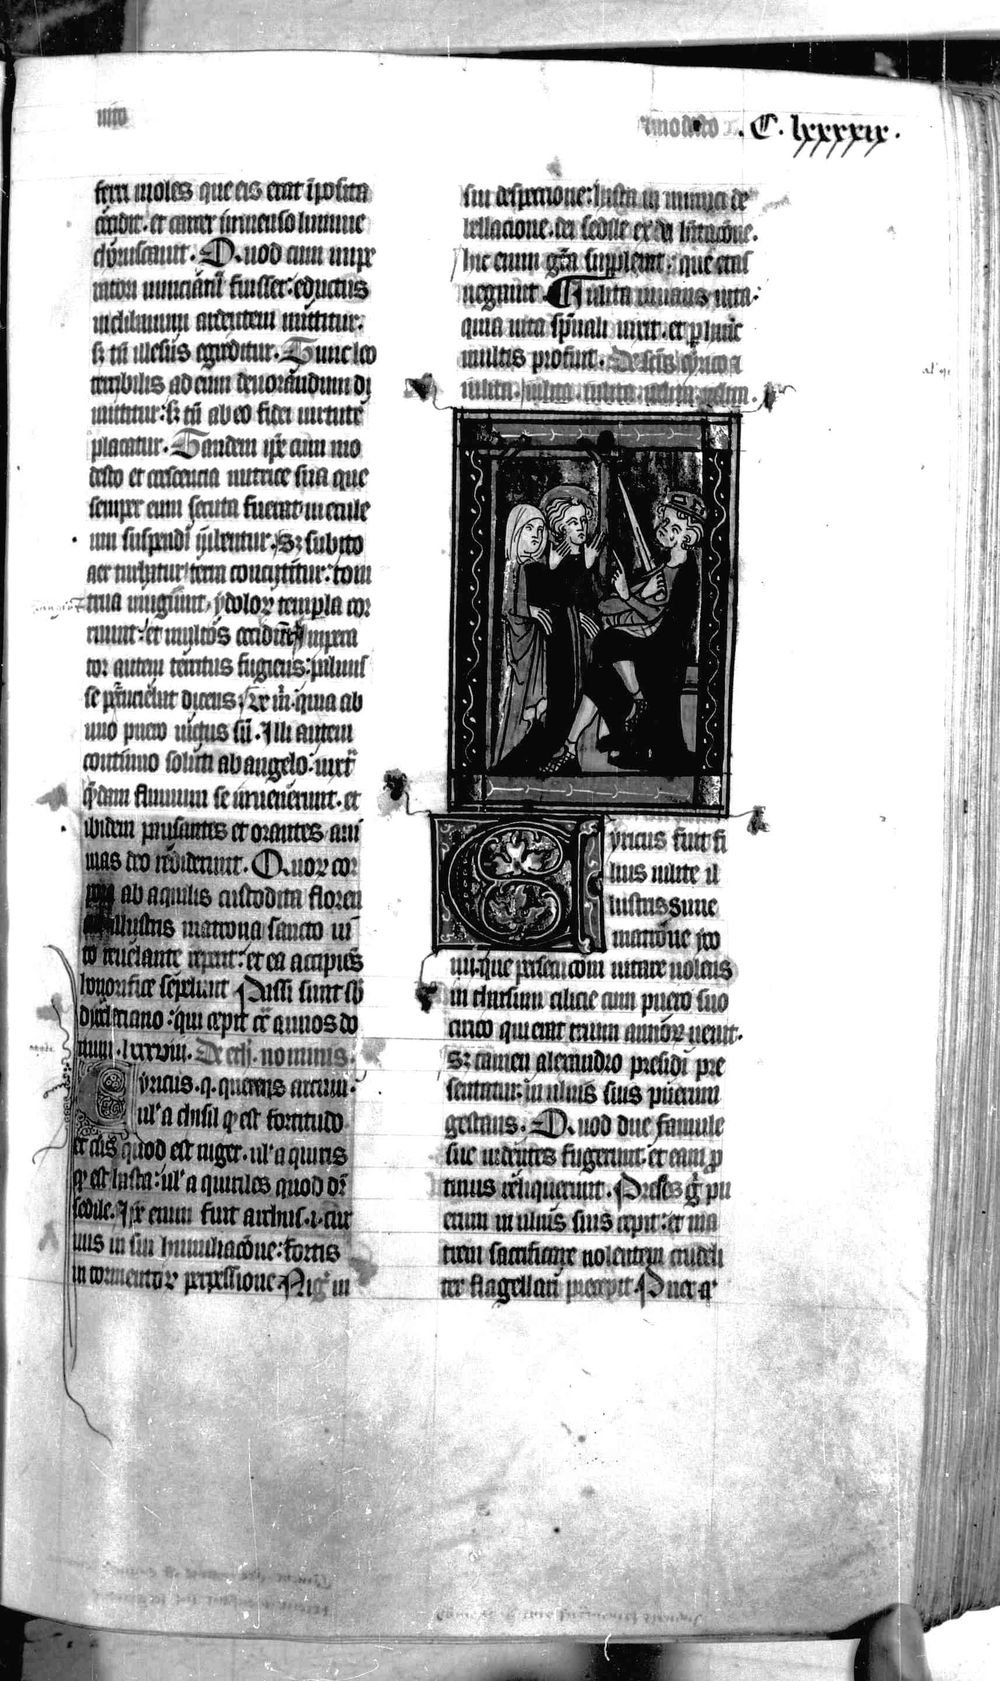 uito
et modesto
.C. lxxxxix.
ferri moles que eis erat īposita
cēidit. et carcer īmenso lumine
choruscauit. Quod cum impe
ratori nunciatū fuisset: eductus
in clibanum ardentem mittitur.
sꝫ tn̄ illesus egreditur. Tunc leo
terribilis ad eum deuorādum di
mittitur: sꝫ tn̄ ab eo fidei uirtute
placatur. Tandem ip̄e cum mo
desto et crescencia nutrice sua que
semper eum secuta fuerat in ecule
um suspendi iubentur. Sꝫ subito
aer turbatur terra concutitur: toni
trua mugiūnt, ydoloꝝ templa cor
ruunt: et multos occidūt impera
tor autem territus fugiens: palmis
se percuciebat dicens. Ve m̄. quia ab
uno puero uictus sū. Illi autem
continuo soluti ab angelo: iuxta
quādam flumium se inuenerunt. et
ibidem pausantes et orantes ani
mas deo reddiderunt. Quoꝝ cor
pora ab aquilis custodita floren
illustris matrona sancto ui
to reuelante reperit: et ea accipiēs
honorifice sepeliuit Passi sunt sb
dyocletiano: qui cepit cr̄ annos do
mini .lxxxviii. De ethi. nominis.
Cyricus .q. querens arcum.
ul' a chisil qd̄ est fortitudo
et cus quod est niger. ul' a quiris
qd̄ est hasta: ul' a quiriles quod dr̄
sedile. Ip̄e enim fuit archus .i. cur
uus in sui humiliacōne: fortis
in tormentoꝝ perpessione Niger in
sui despectione: hasta in inimici de
bellacione. dei sedile ex dei habitacōne.
huc enim grā supplebat: que etas
negauit. Iulita iuuans uita:
quia uita spūali uixit. et per hanc
multis profuit. De scīs quirico et
iulita. iulita. iulita. iulita. iulita.
Cyricus fuit fi
lius iulite il
lustrissime
matrone yco
nii. que persecutionem uitare uolens
in tharsum cilicie cum puero suo
cirico qui erat trium annoꝝ uenit.
Sꝫ tamen alexandro presidi pre
sentatur: in ulnis suis puerum
gestans. Quod due famule
sue uidentes fugerunt. et eam p
tinus reliquerunt. Preses gͦ pu
erum in ulnis suis cepit: et ma
trem sacrificare nolentem crudeli
ter flagellari precepit. Puer aut̄